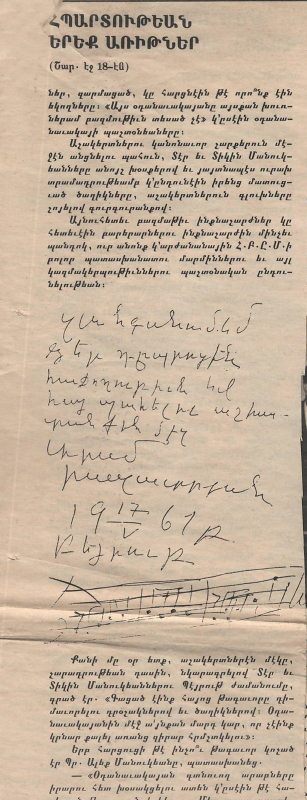 ՀՊԱՐՏՈՒԹԵԱՆ
ԵՐԵՔ ԱՌԻԹՆԵՐ
(Շար. էջ 18-էն)
ներ, զարմացած, կը հարցնէին թէ որո՞նք էին
եկողները։ «Այս օդանաւակայանը այսքան խուռ-
ներամ բազմութիւն տեսած չէ» կ՚ըսէին օդանա-
ւակայի պաշտօնեաները։
Աշակերտներու կանոնաւոր շարքերուն մէ-
ջէն անցնելու պահուն, Տէր եւ Տիկին Մանուկ-
եանները անոյշ խօսքերով եւ յայտնապէս ուրախ
տրամադրութեամբ կ՚ընդունէին իրենց մատուց-
ւած ծաղիկները, աշակերտներուն գլուխները
շոյելով գուրգուրանքով։
Այնուհետեւ բազմաթիւ ինքնաշարժներ կը
հետեւէին բարերարներու ինքնաշարժին մինչեւ
պանդոկ, ուր անոնք կ՚արժանանային Հ.Բ.Ը.Մ.ի
բոլոր պատասխանատու մարմիններու եւ այլ
կազմակերպութիւններու պաշտօնական ընդու-
նելութեան։
հայ
Արամ
Խաչատուրեան
19 17/V 61 թ
Բէյրութ
Քանի մը օր ետք, աշակերտներէն մէկը,
շարադրութեան դասին, նկարագրելով Տէր եւ
Տիկին Մանուկեաններու Պէյրութ ժամանումը,
գրած էր. «Գացած էինք Հայոց թագաւորը դի-
մաւորելու դրօշակներով եւ ծաղիկներով։ Օդա-
նաւակայանին մէջ այնքան մարդ կար, որ չէինք
կրնար քալել առանց զիրար հրմշտկելու»։
Երբ հարցուցի թէ ինչո՞ւ թագաւոր կոչած
էր Պր. Ալեք Մանուկեանը, պատասխանեց.
— «Օդանաւակայան գտնուող արաբները
իրարու հետ խօսակցելու ատեն կ՚ըսէին թէ Հա-